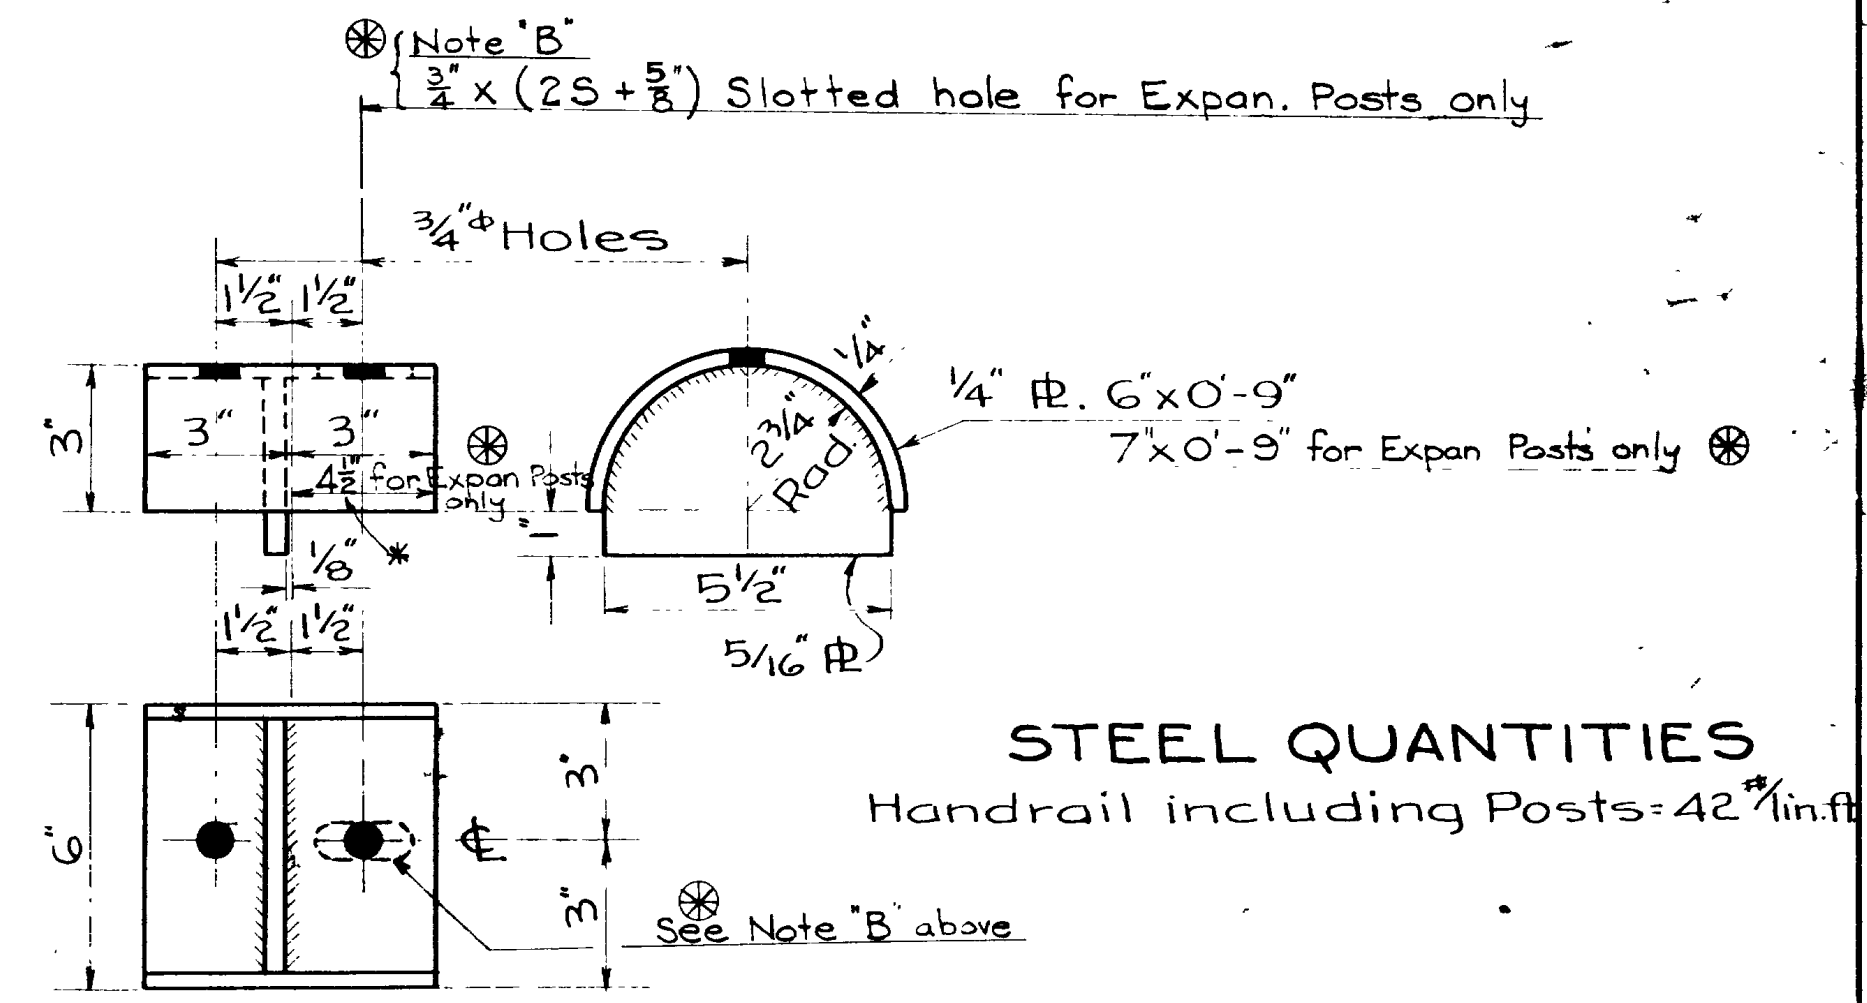 Note "B"
3/4" x (2S + 5/8") Slotted hole for Expan. Posts only
3/4"Φ Holes
1 1/2" 1 1/2"
1/4"
3"
3" 3"
4 1/2" for Expan Posts
only
2 3/4"
Rad.
1/4" PL. 6"x0'-9"
7"x0'-9" for Expan Posts only
1"
1/8"
5 1/2"
5/16" PL
1 1/2" 1 1/2"
6"
3"
CL
3"
See Note "B" above
STEEL QUANTITIES
Handrail including Posts=42#/lin.ft